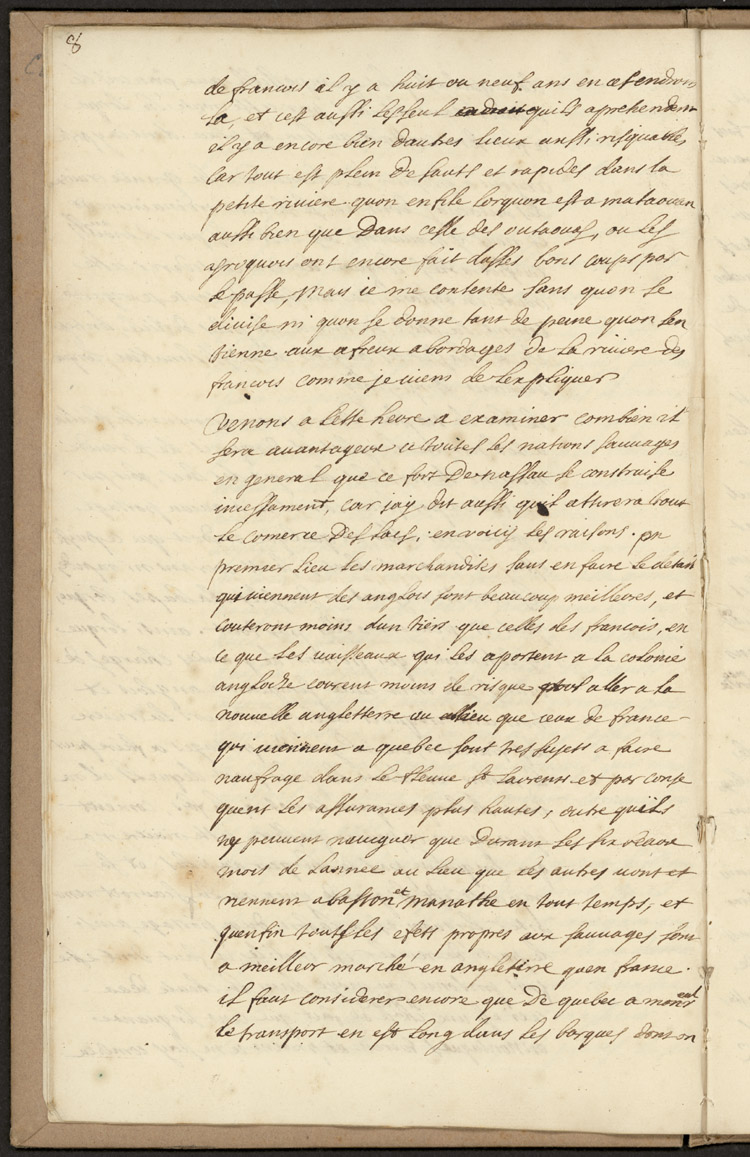 8
de francois il y a huit ou neuf ans en cet endroit
la, et cest aussi le seul endroit quils aprehendent
il y a encore bien dautres lieux aussi risquables
car tout est plein de sauts et rapides dans la
petite riviere quon enfile lorquon est a mataouan
aussi bien que dans celle des outaouas, ou les
iroquois ont encore fait dasses bons coups par
le passe, mais ie me contente sans quon se
divise ni quon se donne tant de peine quon sen
tienne aux afreux abordages de la riviere des
francois comme je viens de lexpliquer
venons a cette heure a examiner combien il
sera avantageux a toutes les nations sauvages
en general que ce fort De nassau se construise
incessament, car jay dit aussi quil attirera tout
le comerce des lacs, en voicy les raisons. en
premier lieu les marchandises sans en faire le detail
qui viennent des anglois sont beaucoup meilleures, et
couteront moins dun tiers que celles des francois, en
ce que les vaisseaux qui les aportent a la colonie
angloise courent moins de risque pour aller a la
nouvelle angletterre au lieu que ceux de france
qui viennent a quebec sont tres sujets a faire
naufrage dans le fleuve st laurens et par conse
quent les assurances plus hautes, outre quils
ny peuvent naviguer que durant les six beaux
mois de lannee au lieu que les autres vont et
viennent a baston et manathe en tout temps, et
quenfin touts les efets propres aux sauvages sont
a meilleur marché en angleterre quen france.
il faut considerer encore que De quebec a monreal
le transport en est long dans les barques dont on